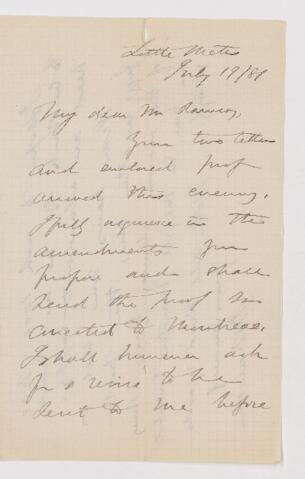 Little Metis
July 19/81
My dear Mr Ramsay,
Your two letters
and enclosed proof
arrived this evening.
I fully acquiesce in the
amendments you
propose and shall
send the proof so
corrected to Montreal.
I shall however ask
for a revise to be
sent to me before